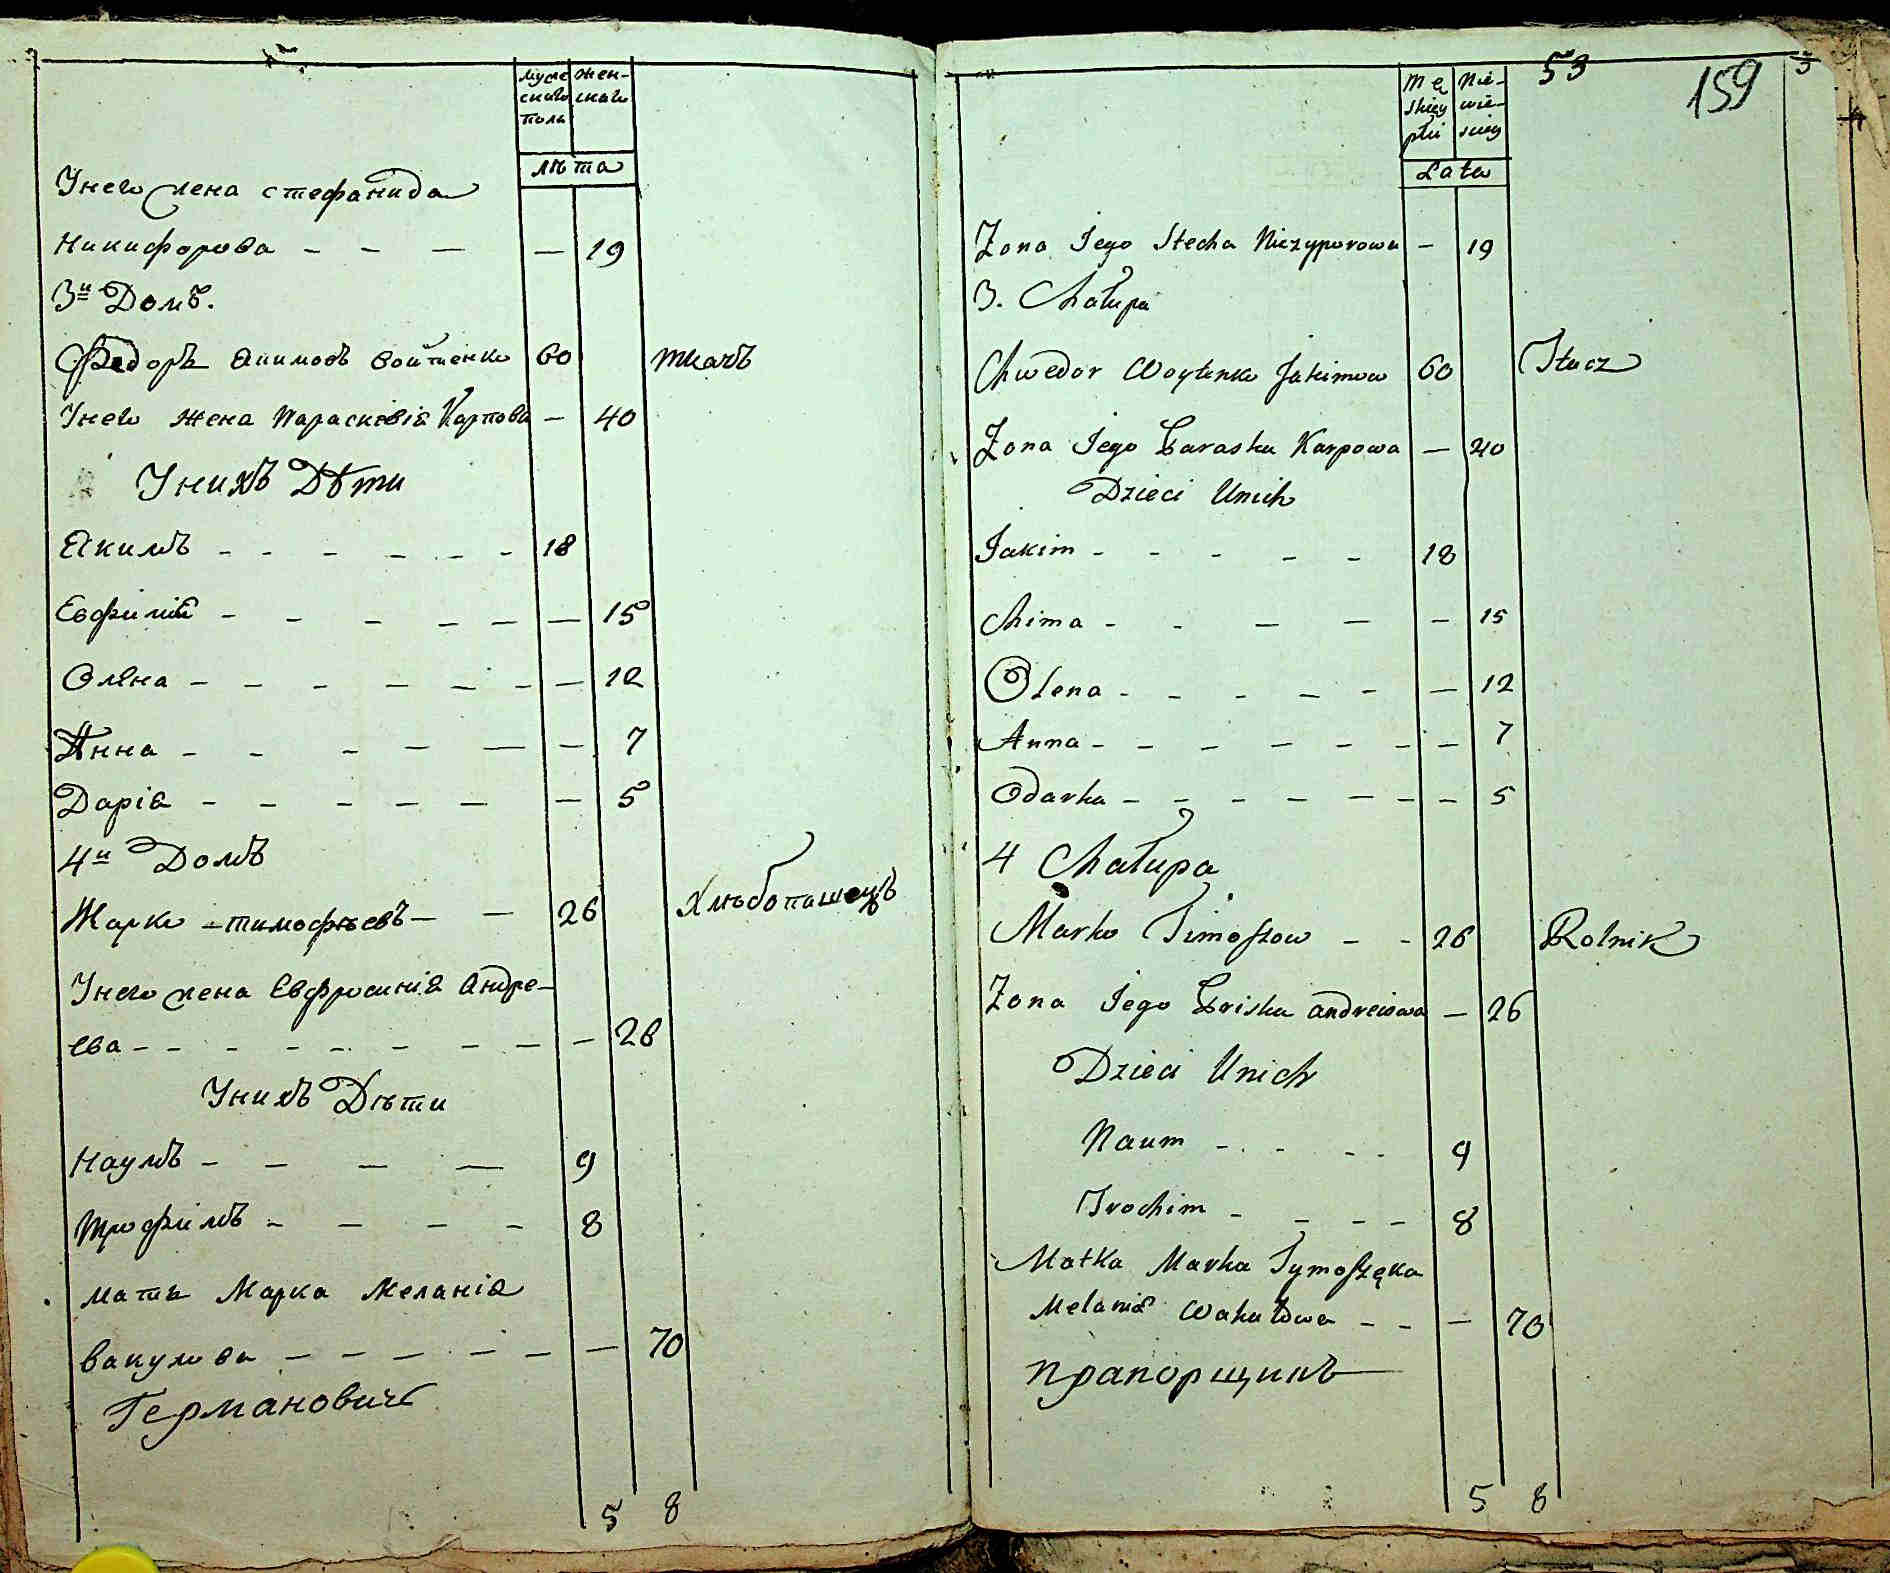 мужескаго полу
женскаго
лѣта
Унего жена стефанида
Никифорова — — — — 19
3й Домъ.
Федоръ Якимовъ войтенко 60 ткачъ
Унего жена Параскѣвія Карпова — 40
Унихъ Дѣти
Якимъ - - - - - - 18
Евфимія - - - - - — 15
Олена - - - - - - — 12
Анна - - - — — - 7
Дарія - - - - — — 5
4й Домъ
Марко тимофѣевъ — — 26 Хлѣбопашецъ
Унего жена Евфросинія Андре-
ева - - - - - - - - - 26
Унихъ Дѣти
Наумъ - - — — 9
Трофимъ - - - - 8
мать Марка Меланія
Вакулова — — — - - - — 70
Германовичъ
5 8
53
159
męskiey płci
Niewieściey
Lata
Zona Jego Stecha Niczyporowa — 19
3. Chałupa
Chwedor Woytenko Jakimow 60 Tkacz
Zona Jego Paraska Karpowa — 40
Dzieci Unich
Jakim - - - - - 18
Chima - - — — - 15
Olena - - - - - — 12
Anna - - - - - - - 7
Odarka - - - - - - - 5
4 Chałupa
Marko Timoszow - - 26 Rolnik
Zona Jego Priska andreiowa — 26
Dzieci Unich
Naum - - - - 9
Trochim - - - - 8
Matka Marka Tymoszęka
Melania Wakułowa - - — 70
прапорщикъ
5 8